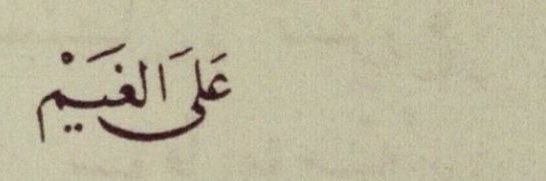 عَلَى الغَيَمْ